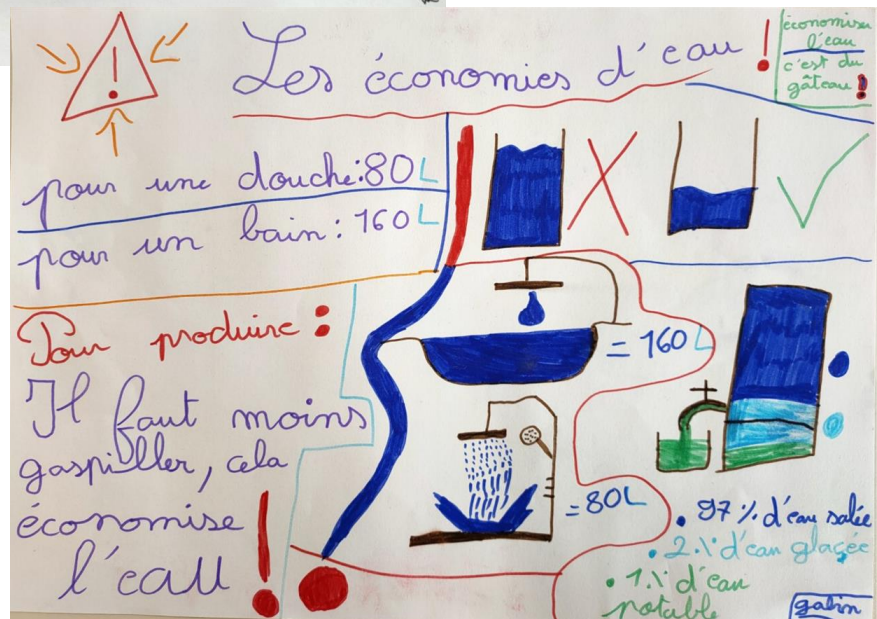 Les économies d'eau !
économiser
l'eau
c'est du
gâteau !
pour une douche : 80 L
pour un bain : 160 L
Pour produire :
Il faut moins
gaspiller, cela
économise
l'eau !
= 160 L
= 80 L
• 97 % d'eau salée
• 2 % d'eau glaçée
• 1 % d'eau
potable